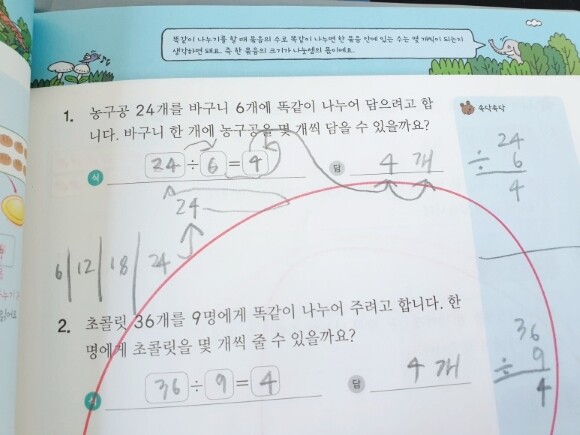 똑같이 나누기를 할 때 묶음의 수로 똑같이 나누면 한 묶음 안에 있는 수는 몇 개씩이 되는지
생각하면 돼요. 즉 한 묶음의 크기가 나눗셈의 몫이에요.
1. 농구공 24개를 바구니 6개에 똑같이 나누어 담으려고 합
니다. 바구니 한 개에 농구공을 몇 개씩 담을 수 있을까요?
식 24 ÷ 6 = 4 답 4 개
24
6 | 12 | 18 | 24
2. 초콜릿 36개를 9명에게 똑같이 나누어 주려고 합니다. 한
명에게 초콜릿을 몇 개씩 줄 수 있을까요?
식 36 ÷ 9 = 4 답 4 개
속닥속닥
24
÷ 6
4
36
÷ 9
4